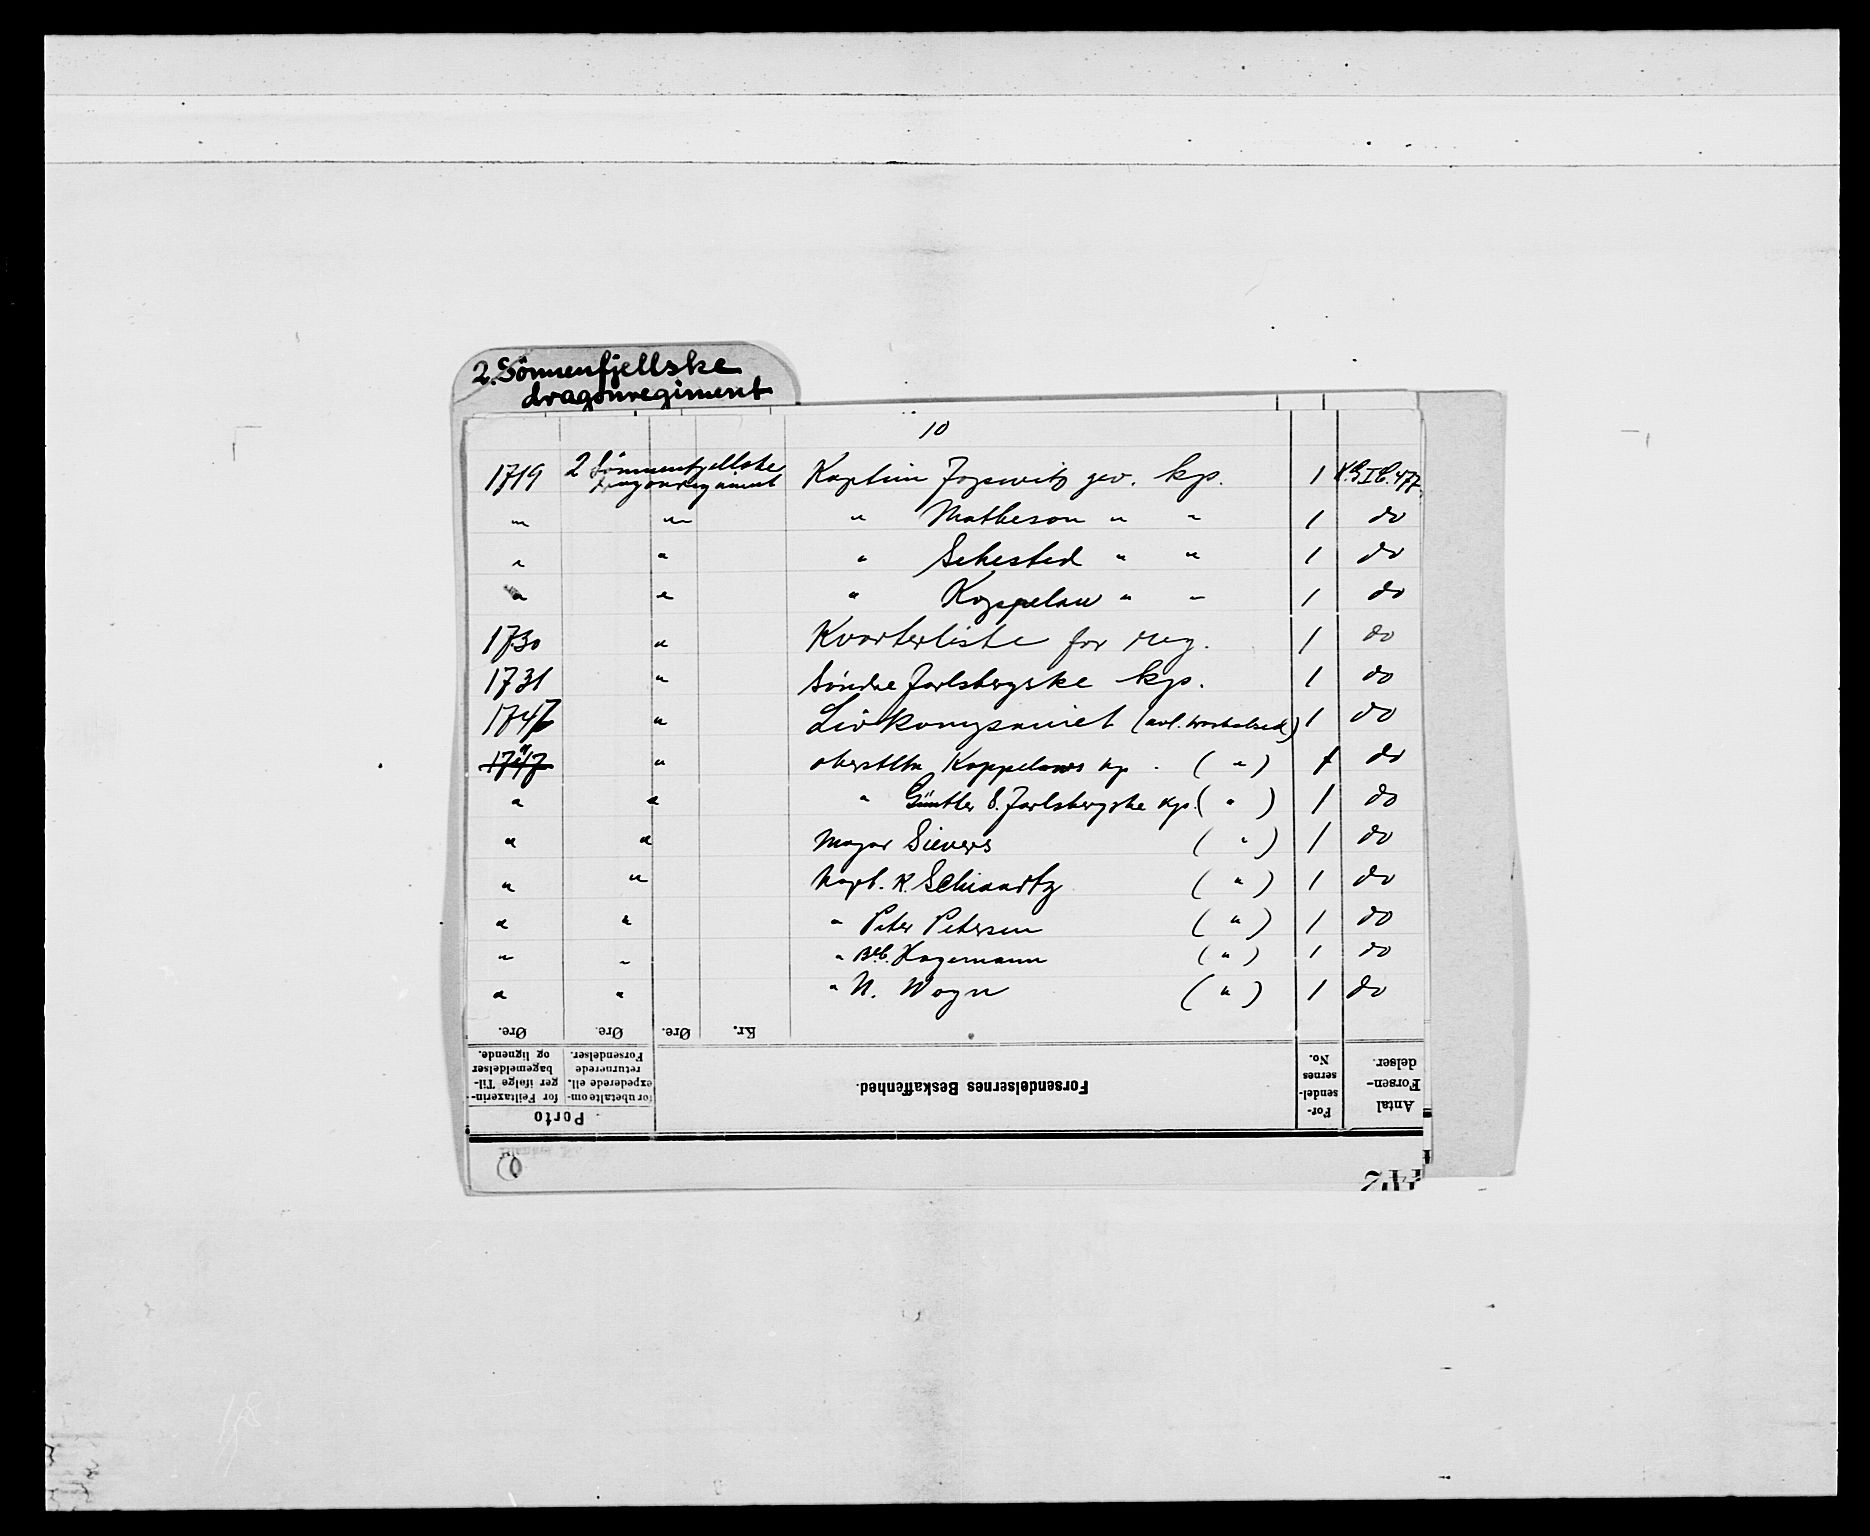 2. Sönnenfjellske
dragonregiment
10
1719 2 Sönnenfjellske dragonregiment Kaptein Jogswitz gev. kp. 1
" " " Matheson " " 1 do
" " " Sehested " " 1 do
" " " Koppelau " " 1 do
1730 " Kvarterliste for reg. 1 do
1731 " Söndre Jarlsbergske kp. 1 do
1747 " Livkompaniet 1 do
1747 " oberstltn Koppelows kp. ( " ) 1 do
" " " Günther S. Jarlsbergske kp. ( " ) 1 do
" " Major Sievers ( " ) 1 do
" " Kapt. K. Schwartz ( " ) 1 do
" " " Peter Petersen ( " ) 1 do
" " " Hagemann ( " ) 1 do
" " " N. Wogn ( " ) 1 do
Øre. Øre. Øre. Kr.
Porto
for Feiltaxerin-
ger ifølge Til-
bagemeldelser
og lignende.
for ubetalte om-
expederede ell.
returnerede
Forsendelser.
Forsendelsernes Beskaffenhed.
For-
sendel-
sernes
No.
Antal
Forsen-
delser.